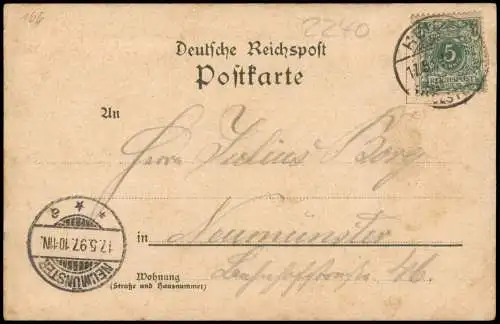 166
2240
Deutsche Reichspost
Postkarte
5
REICHSPOST
An
Herrn Julius Borg
in Neumünster
Wohnung
(Straße und Hausnummer)
Bahnhofstraße 46.
NEUMÜNSTER
17.5.97.10-11N.